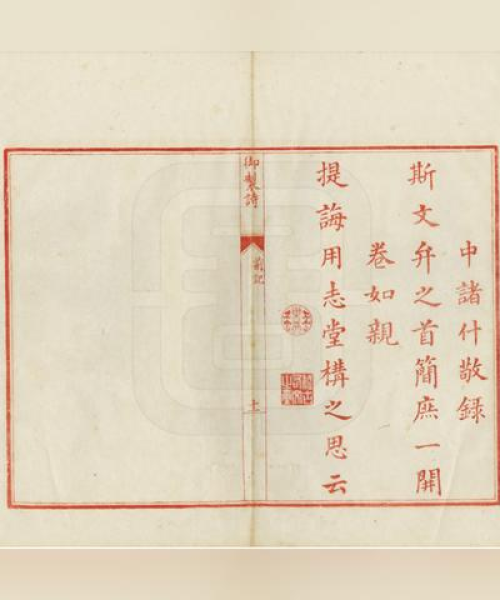 中諸什敬録
斯文弁之首簡庶一開
卷如親
提誨用志堂構之思云
御製詩
前記
十